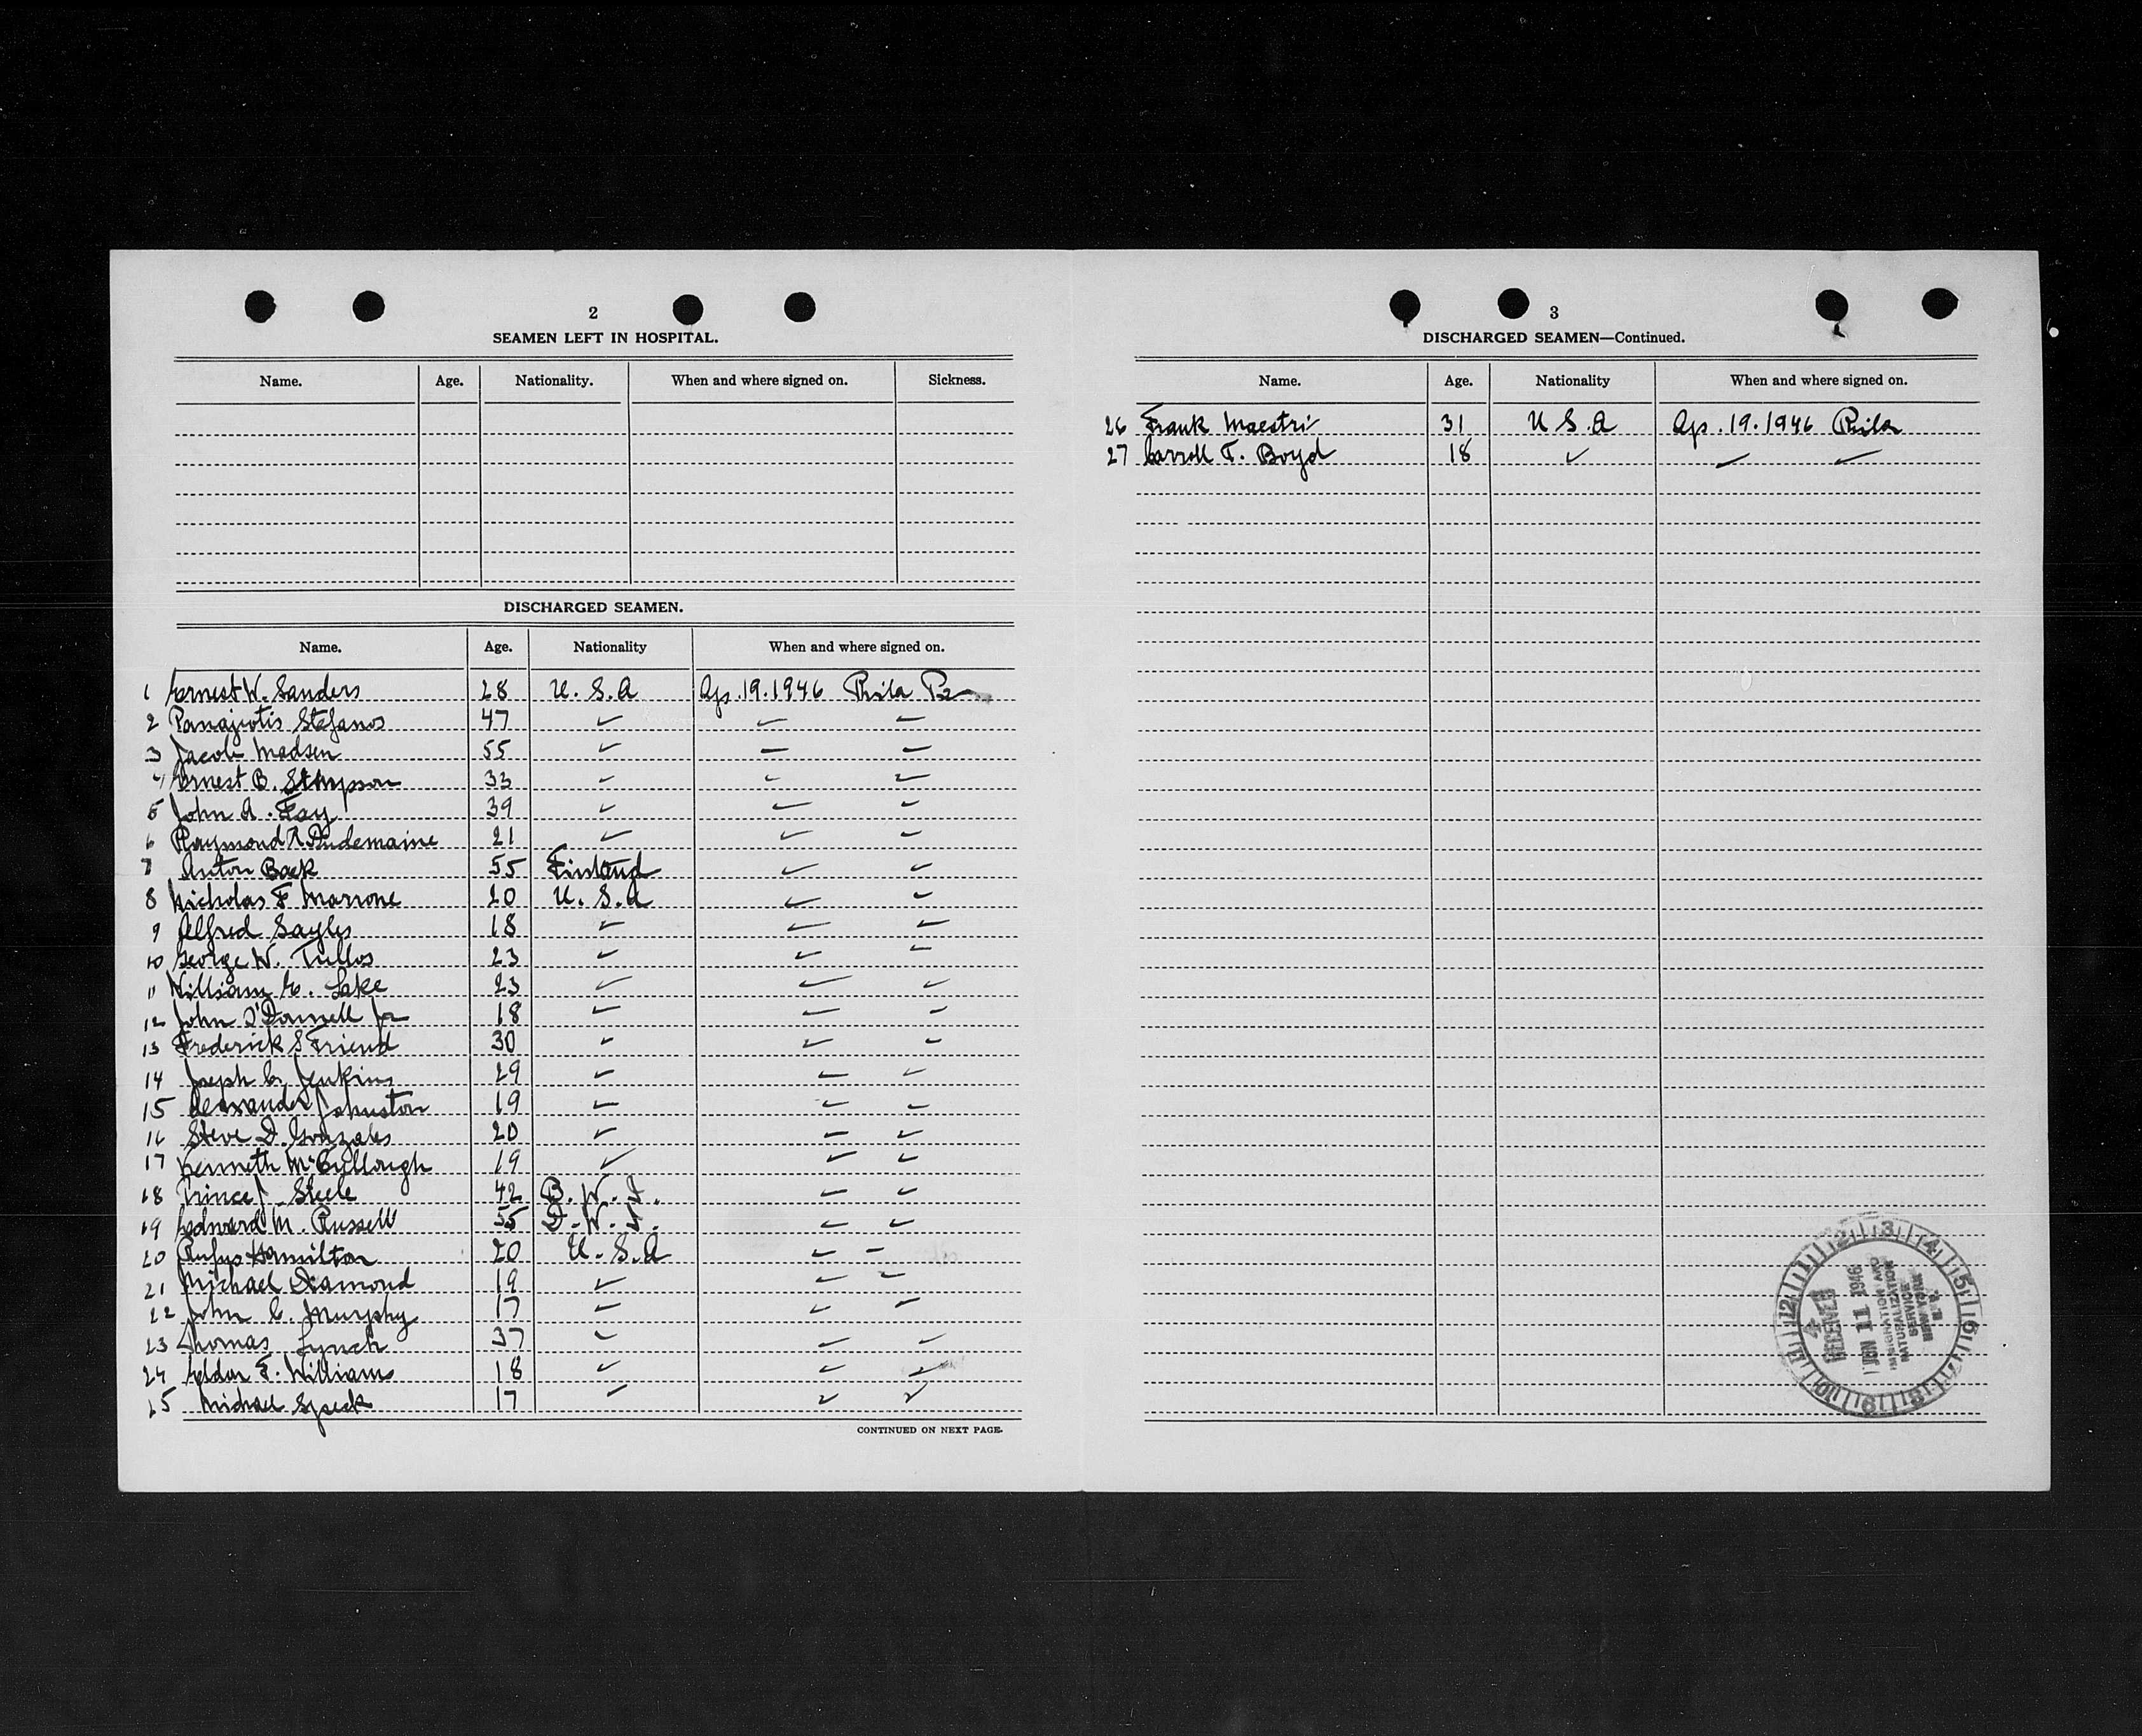 2
SEAMEN LEFT IN HOSPITAL.
Name. Age. Nationality. When and where signed on. Sickness.
DISCHARGED SEAMEN.
Name. Age. Nationality When and where signed on.
1 Ernest W. Sanders 28 U.S.A Ap. 19. 1946 Phila Pa
2 Panajotis Stefanos 47 ✓ ✓ ✓
3 Jacob Madsen 55 ✓ — —
4 Ernest B. Stimpson 33 ✓ ✓ ✓
5 John A. Fay 39 ✓ ✓ ✓
6 Raymond R Dudemaine 21 ✓ ✓ ✓
7 Anton Back 55 Finland ✓ ✓
8 Nicholas F Marrone 20 U.S.A ✓ ✓
9 Alfred Sayles 18 ✓ ✓ ✓
10 George W. Tullos 23 ✓ ✓ ✓
11 William E. Lake 23 ✓ ✓ ✓
12 John O'Donnell Jr 18 ✓ ✓ ✓
13 Frederick S Friend 30 ✓ ✓ ✓
14 Joseph C. Jenkins 29 ✓ ✓ ✓
15 Alexander Johnston 19 ✓ ✓ ✓
16 Steve D. Gonzales 20 ✓ ✓ ✓
17 Kenneth McCullough 19 ✓ ✓ ✓
18 Prince J. Steele 42 B.W.I. ✓ ✓
19 Edward M. Russell 55 D.W.I. ✓ ✓
20 Rufus Hamilton 20 U.S.A ✓ —
21 Michael Diamond 19 ✓ ✓ ✓
22 John C. Murphy 17 ✓ ✓ ✓
23 Thomas Lynch 37 ✓ ✓ ✓
24 Eldon F. Williams 18 ✓ ✓ ✓
25 Michael Speck 17 ✓ ✓ ✓
CONTINUED ON NEXT PAGE.
3
DISCHARGED SEAMEN—Continued.
Name. Age. Nationality When and where signed on.
26 Frank Maestri 31 U S.A Ap. 19. 1946 Phila
27 Carroll F. Boyd 18 ✓ ✓ ✓
12 1 2 3 4 5 6 7 8 9 10 11
4
RECEIVED
JUN 11 1946
IMMIGRATION AND
NATURALIZATION
SERVICE
NEW YORK
N.Y.